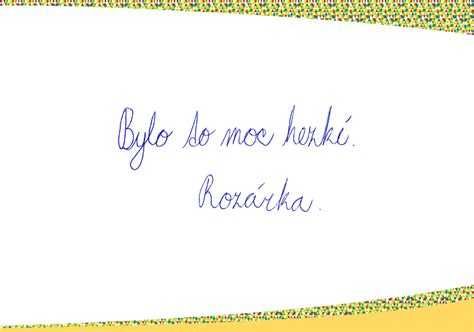 Bylo to moc hezkí.
Rozárka.